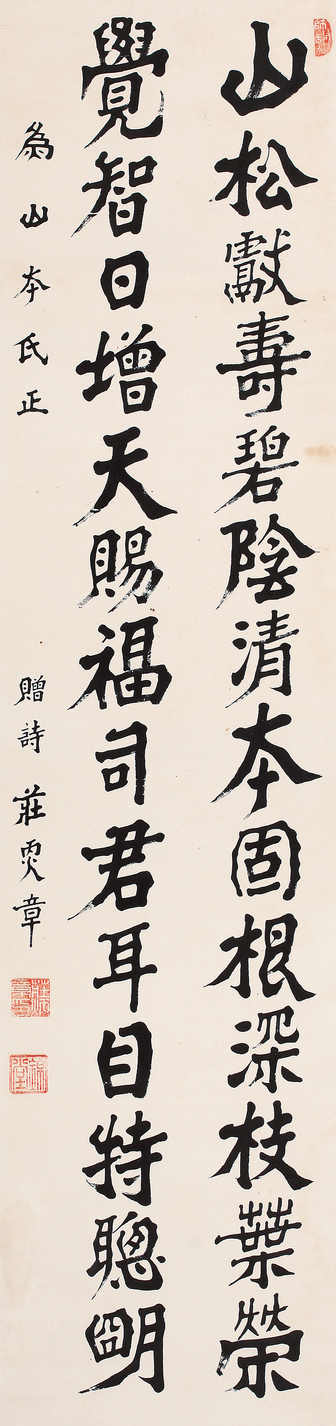 山松獻壽碧陰清本固根深枝葉榮
覺智日增天賜福司君耳目特聰明
為山本氏正
贈詩 莊  章